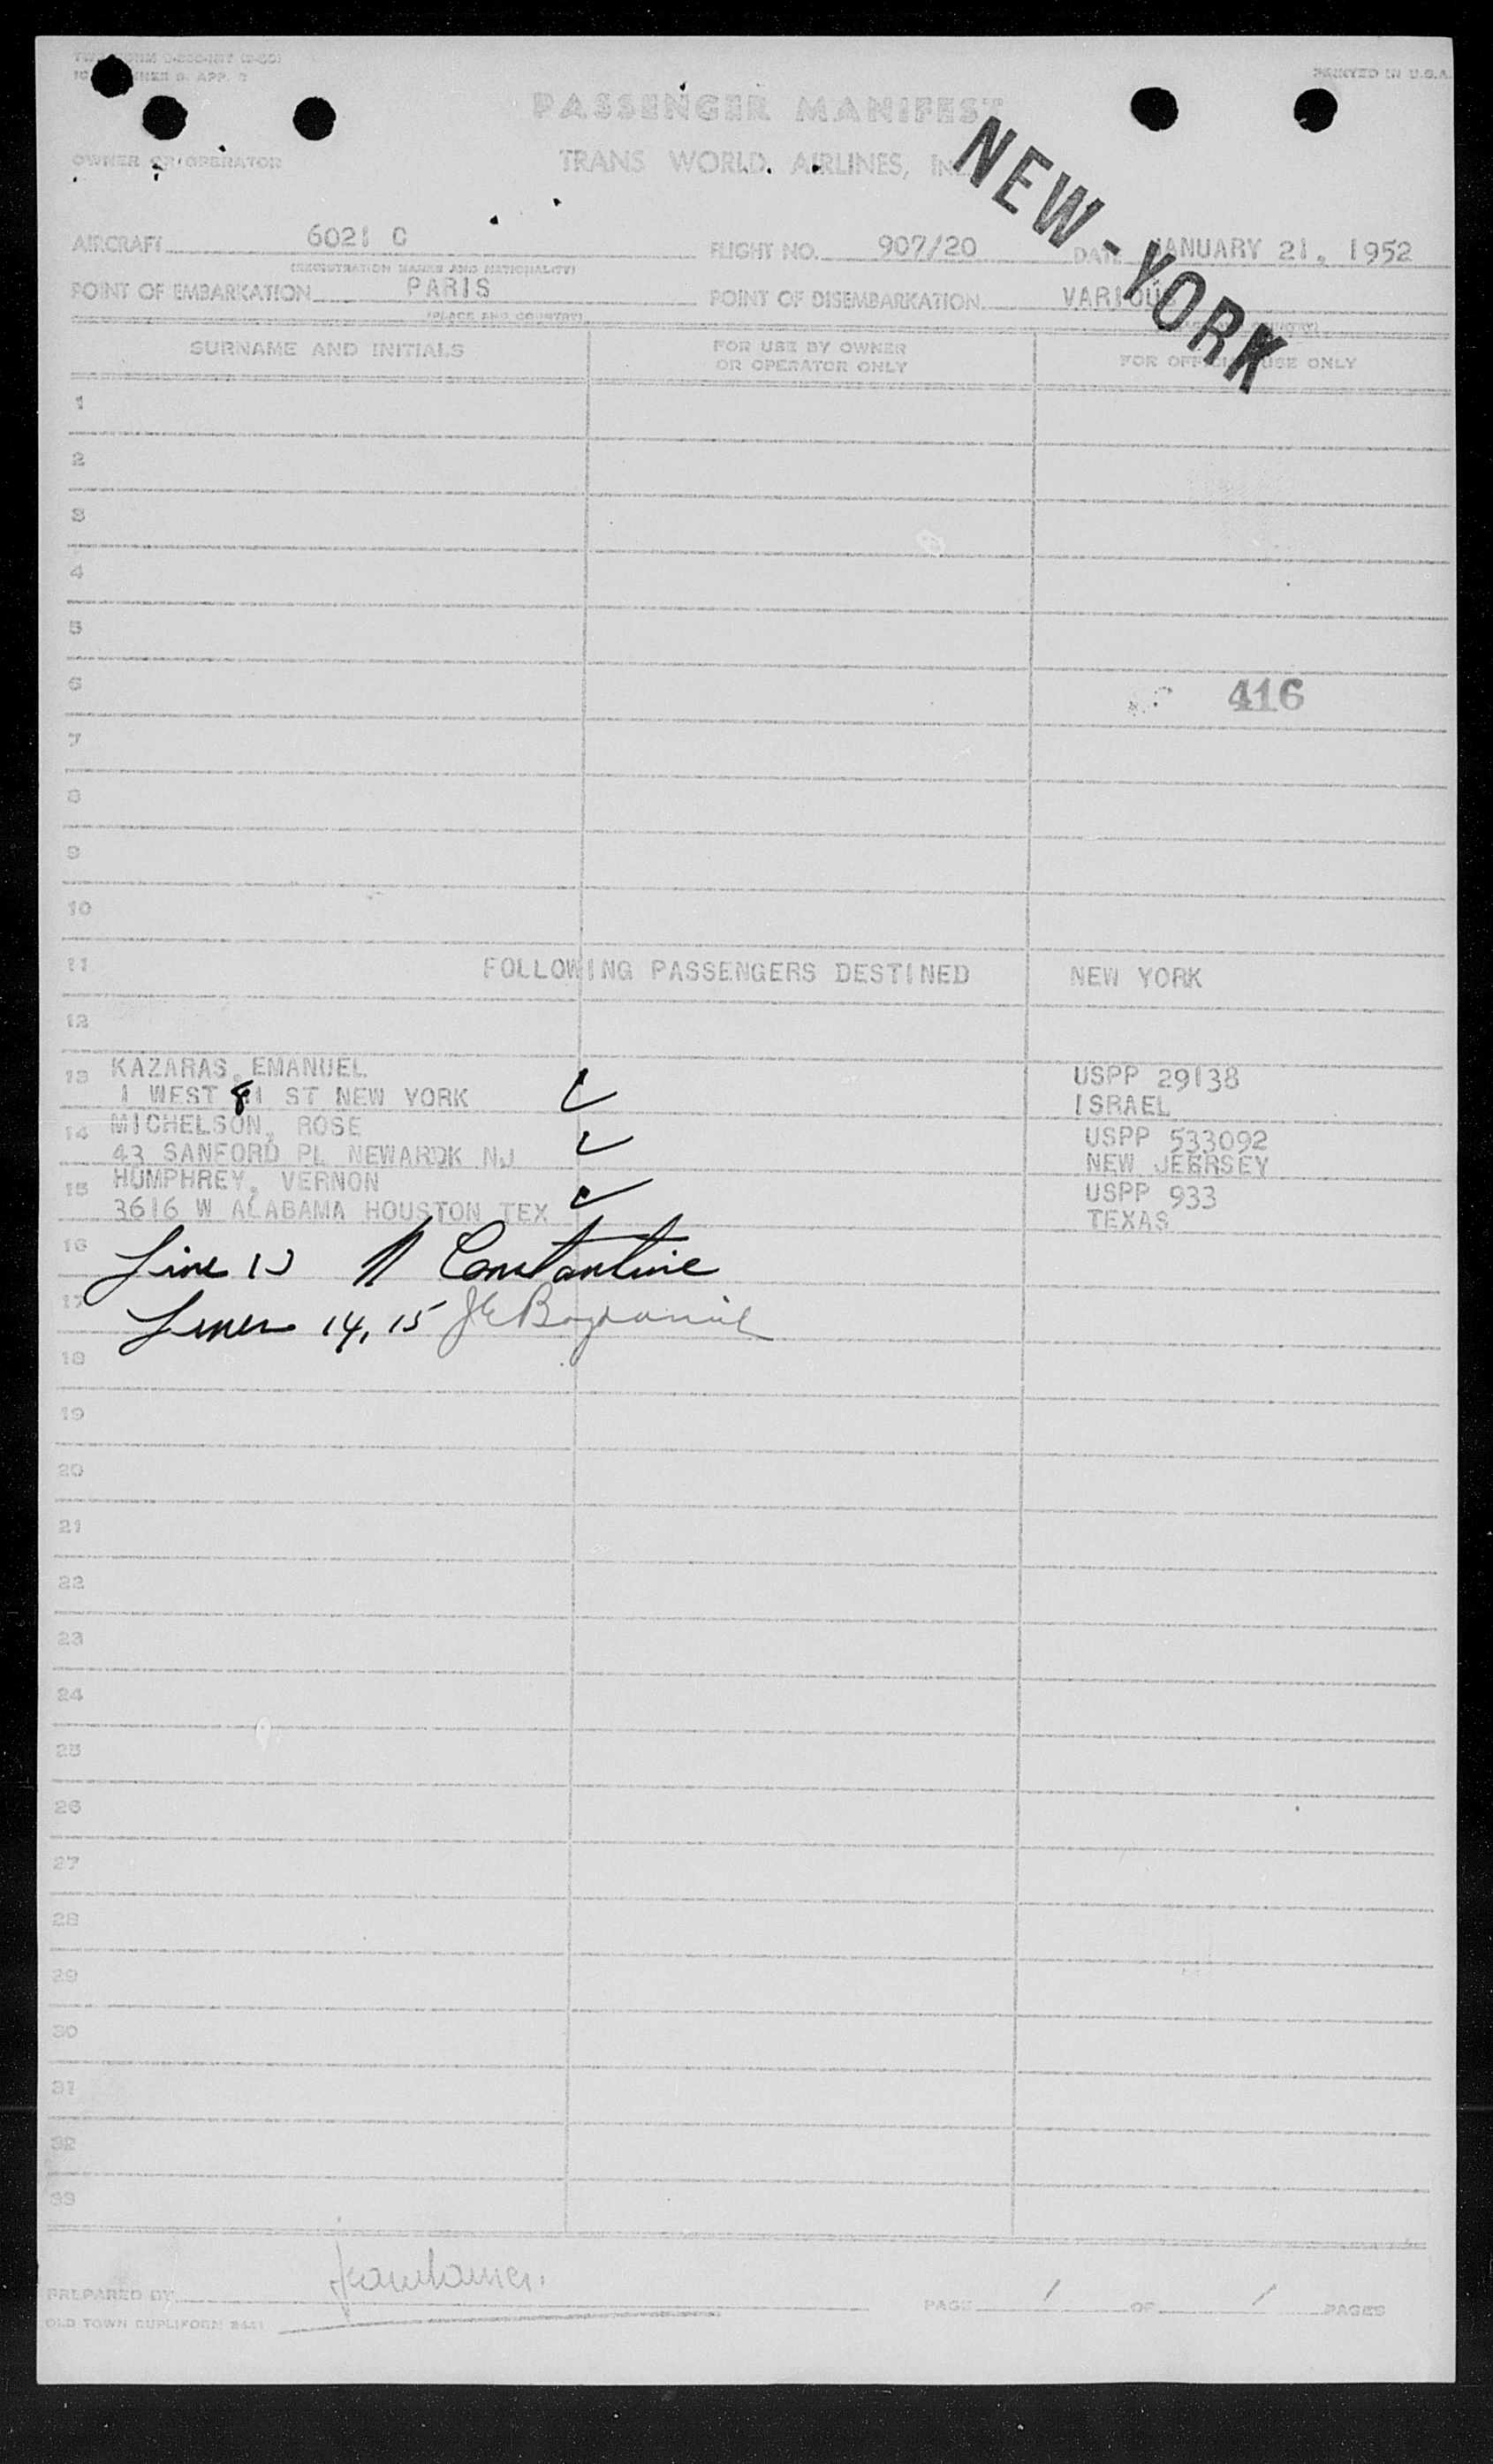 PRINTED IN U.S.A.
PASSENGER MANIFEST
OWNER OR OPERATOR
TRANS WORLD AIRLINES, INC.
NEW-YORK
AIRCRAFT 6021 C FLIGHT NO. 907/20 DATE JANUARY 21, 1952
(REGISTRATION MARKS AND NATIONALITY)
POINT OF EMBARKATION PARIS POINT OF DISEMBARKATION VARIOUS
(PLACE AND COUNTRY)
SURNAME AND INITIALS FOR USE BY OWNER OR OPERATOR ONLY FOR OFFICIAL USE ONLY
1
2
3
4
5
6 416
7
8
9
10
11 FOLLOWING PASSENGERS DESTINED NEW YORK
12
13 KAZARAS, EMANUEL USPP 29138
1 WEST 81 ST NEW YORK ISRAEL
14 MICHELSON, ROSE USPP 533092
43 SANFORD PL NEWARDK NJ NEW JEERSEY
15 HUMPHREY, VERNON USPP 933
3616 W ALABAMA HOUSTON TEX TEXAS
16 Line 13 N Constantine
17 Lines 14, 15
18
19
20
21
22
23
24
25
26
27
28
29
30
31
32
33
PREPARED BY PAGE 1 OF 1 PAGES
OLD TOWN DUPLIFORM